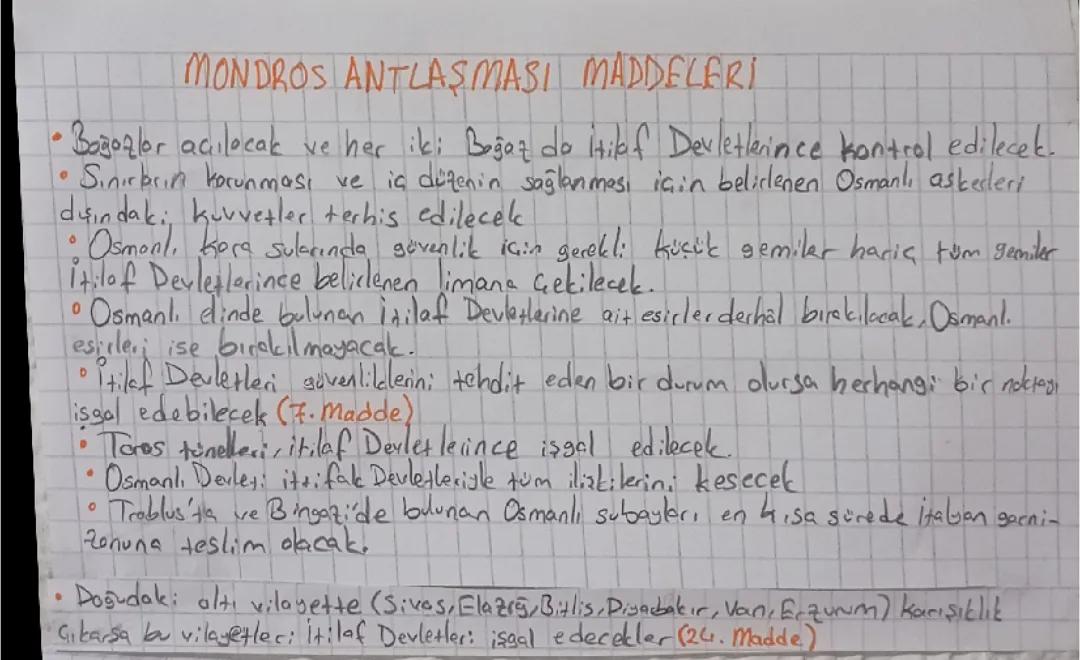 MONDROS ANTLAŞMASI MADDELERİ
• Boğazlar açılacak ve her iki Boğaz da İtilaf Devletlerince kontrol edilecek.
• Sınırların korunması ve iç düzenin sağlanması için belirlenen Osmanlı askerleri
dışındaki kuvvetler terhis edilecek
• Osmanlı kara sularında güvenlik için gerekli küçük gemiler hariç tüm gemiler
İtilaf Devletlerince belirlenen limana çekilecek.
• Osmanlı elinde bulunan İtilaf Devletlerine ait esirler derhal bırakılacak, Osmanlı
esirleri ise bırakılmayacak.
• İtilaf Devletleri güvenliklerini tehdit eden bir durum olursa herhangi bir noktayı
işgal edebilecek (7. Madde)
• Toros tünelleri, itilaf Devletlerince işgal edilecek.
• Osmanlı Devleti ittifak Devletleriyle tüm ilişkilerini kesecek
• Trablus'ta ve Bingazi'de bulunan Osmanlı subayları en kısa sürede italyan garni-
zonuna teslim olacak.
• Doğudaki altı vilayette (Sivas, Elazığ, Bitlis, Diyarbakır, Van, Erzurum) Karışıklık
Çıkarsa bu vilayetleri İtilaf Devletleri işgal edecekler (24. Madde)